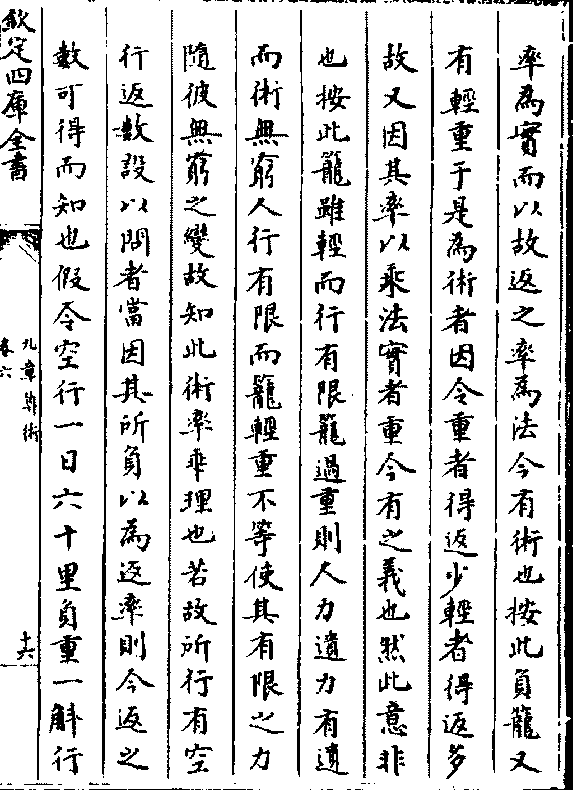 率為實而以故返之率為法今有術也按此負籠又
有輕重于是為術者因令重者得返少輕者得返多
故又因其率以乘法實者重今有之義也然此意非
也按此籠雖輕而行有限籠過重則人力遺力有遺
而術無窮人行有限而籠輕重不等使其有限之力
隨彼無窮之變故知此術率乖理也若故所行有空
行返數設以問者當因其所負以為返率則今返之
數可得而知也假令空行一日六十里負重一斛行
欽定四庫全書
九章算術
卷六
十六